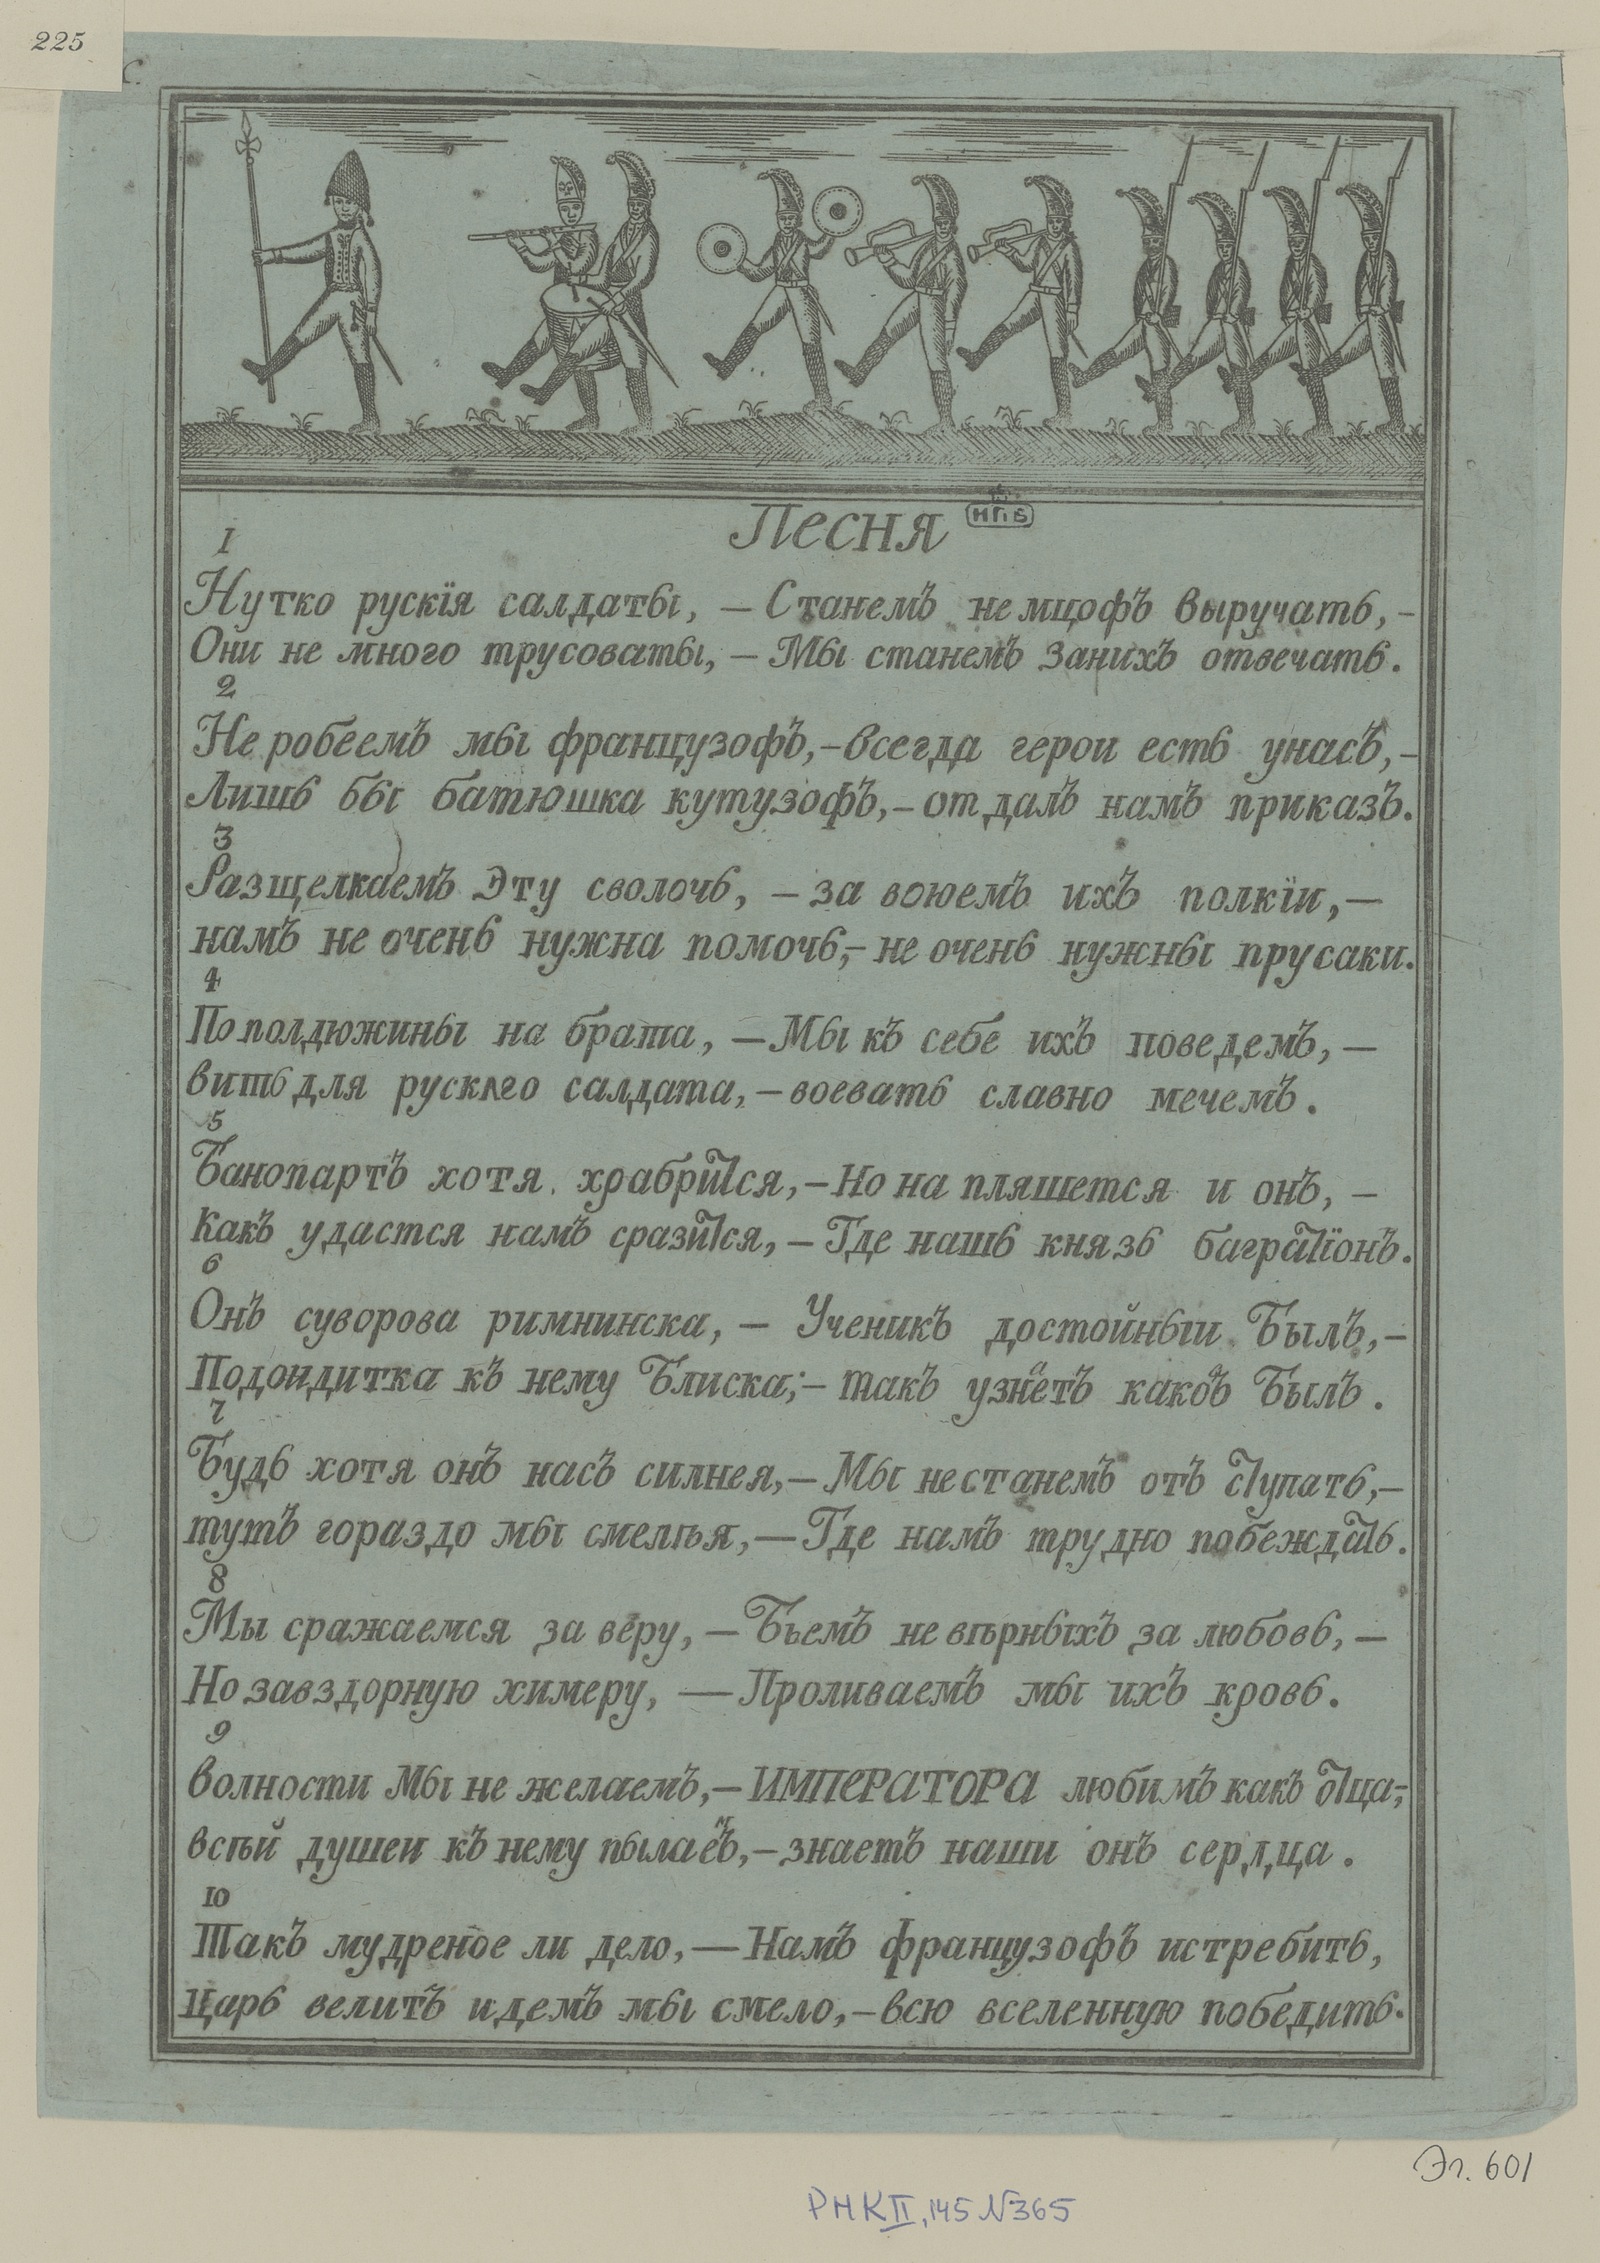 225
С.
Песня
НПБ
1
Нутко рускїя салдаты, — Станемъ немцофъ выручать, -
Они не много трусоваты, — Мы станемъ занихъ отвечать.
2
Не робеемъ мы французофъ, — всегда герои есть унасъ, -
Лишь бы батюшка кутузофъ, — отдалъ намъ приказъ.
3
Разщелкаемъ Эту сволочь, — за воюемъ ихъ полкїи, —
намъ не очень нужна помочь, — не очень нужны прусаки.
4
По полдюжины на брата, — Мы къ себе ихъ поведемъ, —
вить для рускаго салдата, — воевать славно мечемъ.
5
Банопартъ хотя храбрится, — Но на пляшется и онъ, —
какъ удастся намъ сразится, — Где нашь князь баґратїонъ.
6
Онъ суворова римнинска, — Ученикъ достойныи Былъ, —
Подоидитка къ нему Блиска; — такъ узнаетъ каковъ Былъ.
7
Будь хотя онъ насъ силнея, — Мы нестанемъ отъ ступать, —
тутъ гораздо мы смелѣя, — Где намъ трудно побеждать.
8
Мы сражаемся за веру, — Бьемъ не вѣрныхъ за любовь, —
Но завздорную химеру, — Проливаемъ мы ихъ кровь.
9
волности Мы не желаемъ, — ИМПЕРАТОРА любимъ какъ отца;
всѣй душеи къ нему пылаемъ, — знаетъ наши онъ сердца.
10
Такъ мудреное ли дело, — Намъ французофъ истребить,
Царь велитъ идемъ мы смело, — всю вселенную победить.
Эл. 601
РНК II, 145 N365